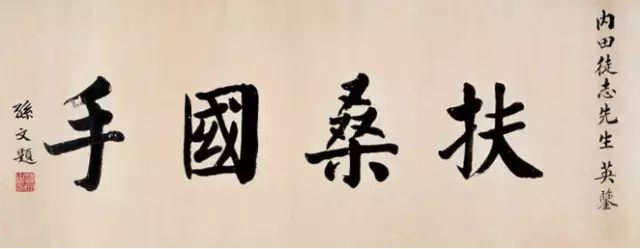 内田徒志先生 英鑒
扶桑國手
孫文題